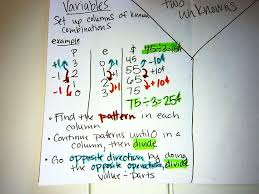 Variables
Set up columns of known
combinations.
example
P e $ 45÷3=15¢
+1 3 0 45 +10¢
-1 2 1 +1 55 +10¢
1 2 +1 65
-1 0 3 75 +10¢
75÷3=25¢
• Find the pattern in each
column
• Continue patterns until 0 in a
column, then divide
• Go opposite direction by doing
the opposite operations, divide
value ÷ parts
two
unknowns